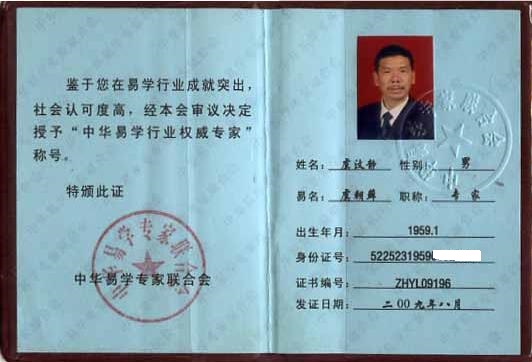 鉴于您在易学行业成就突出，
社会认可度高，经本会审议决定
授予“中华易学行业权威专家”
称号。
特颁此证
中华易学专家联合会
中华易学专家联合会
姓名： 性别：男
易名： 职称：专家
出生年月：1959.1
身份证号：5225231959
证书编号：ZHYL09196
发证日期：二00九年八月